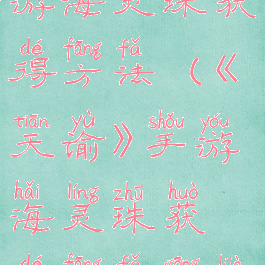 游海灵珠获
dé fāng fǎ
得方法（《
tiān yù shǒu yóu
天谕》手游
hǎi líng zhū huò
海灵珠获
dé fāng fǎ